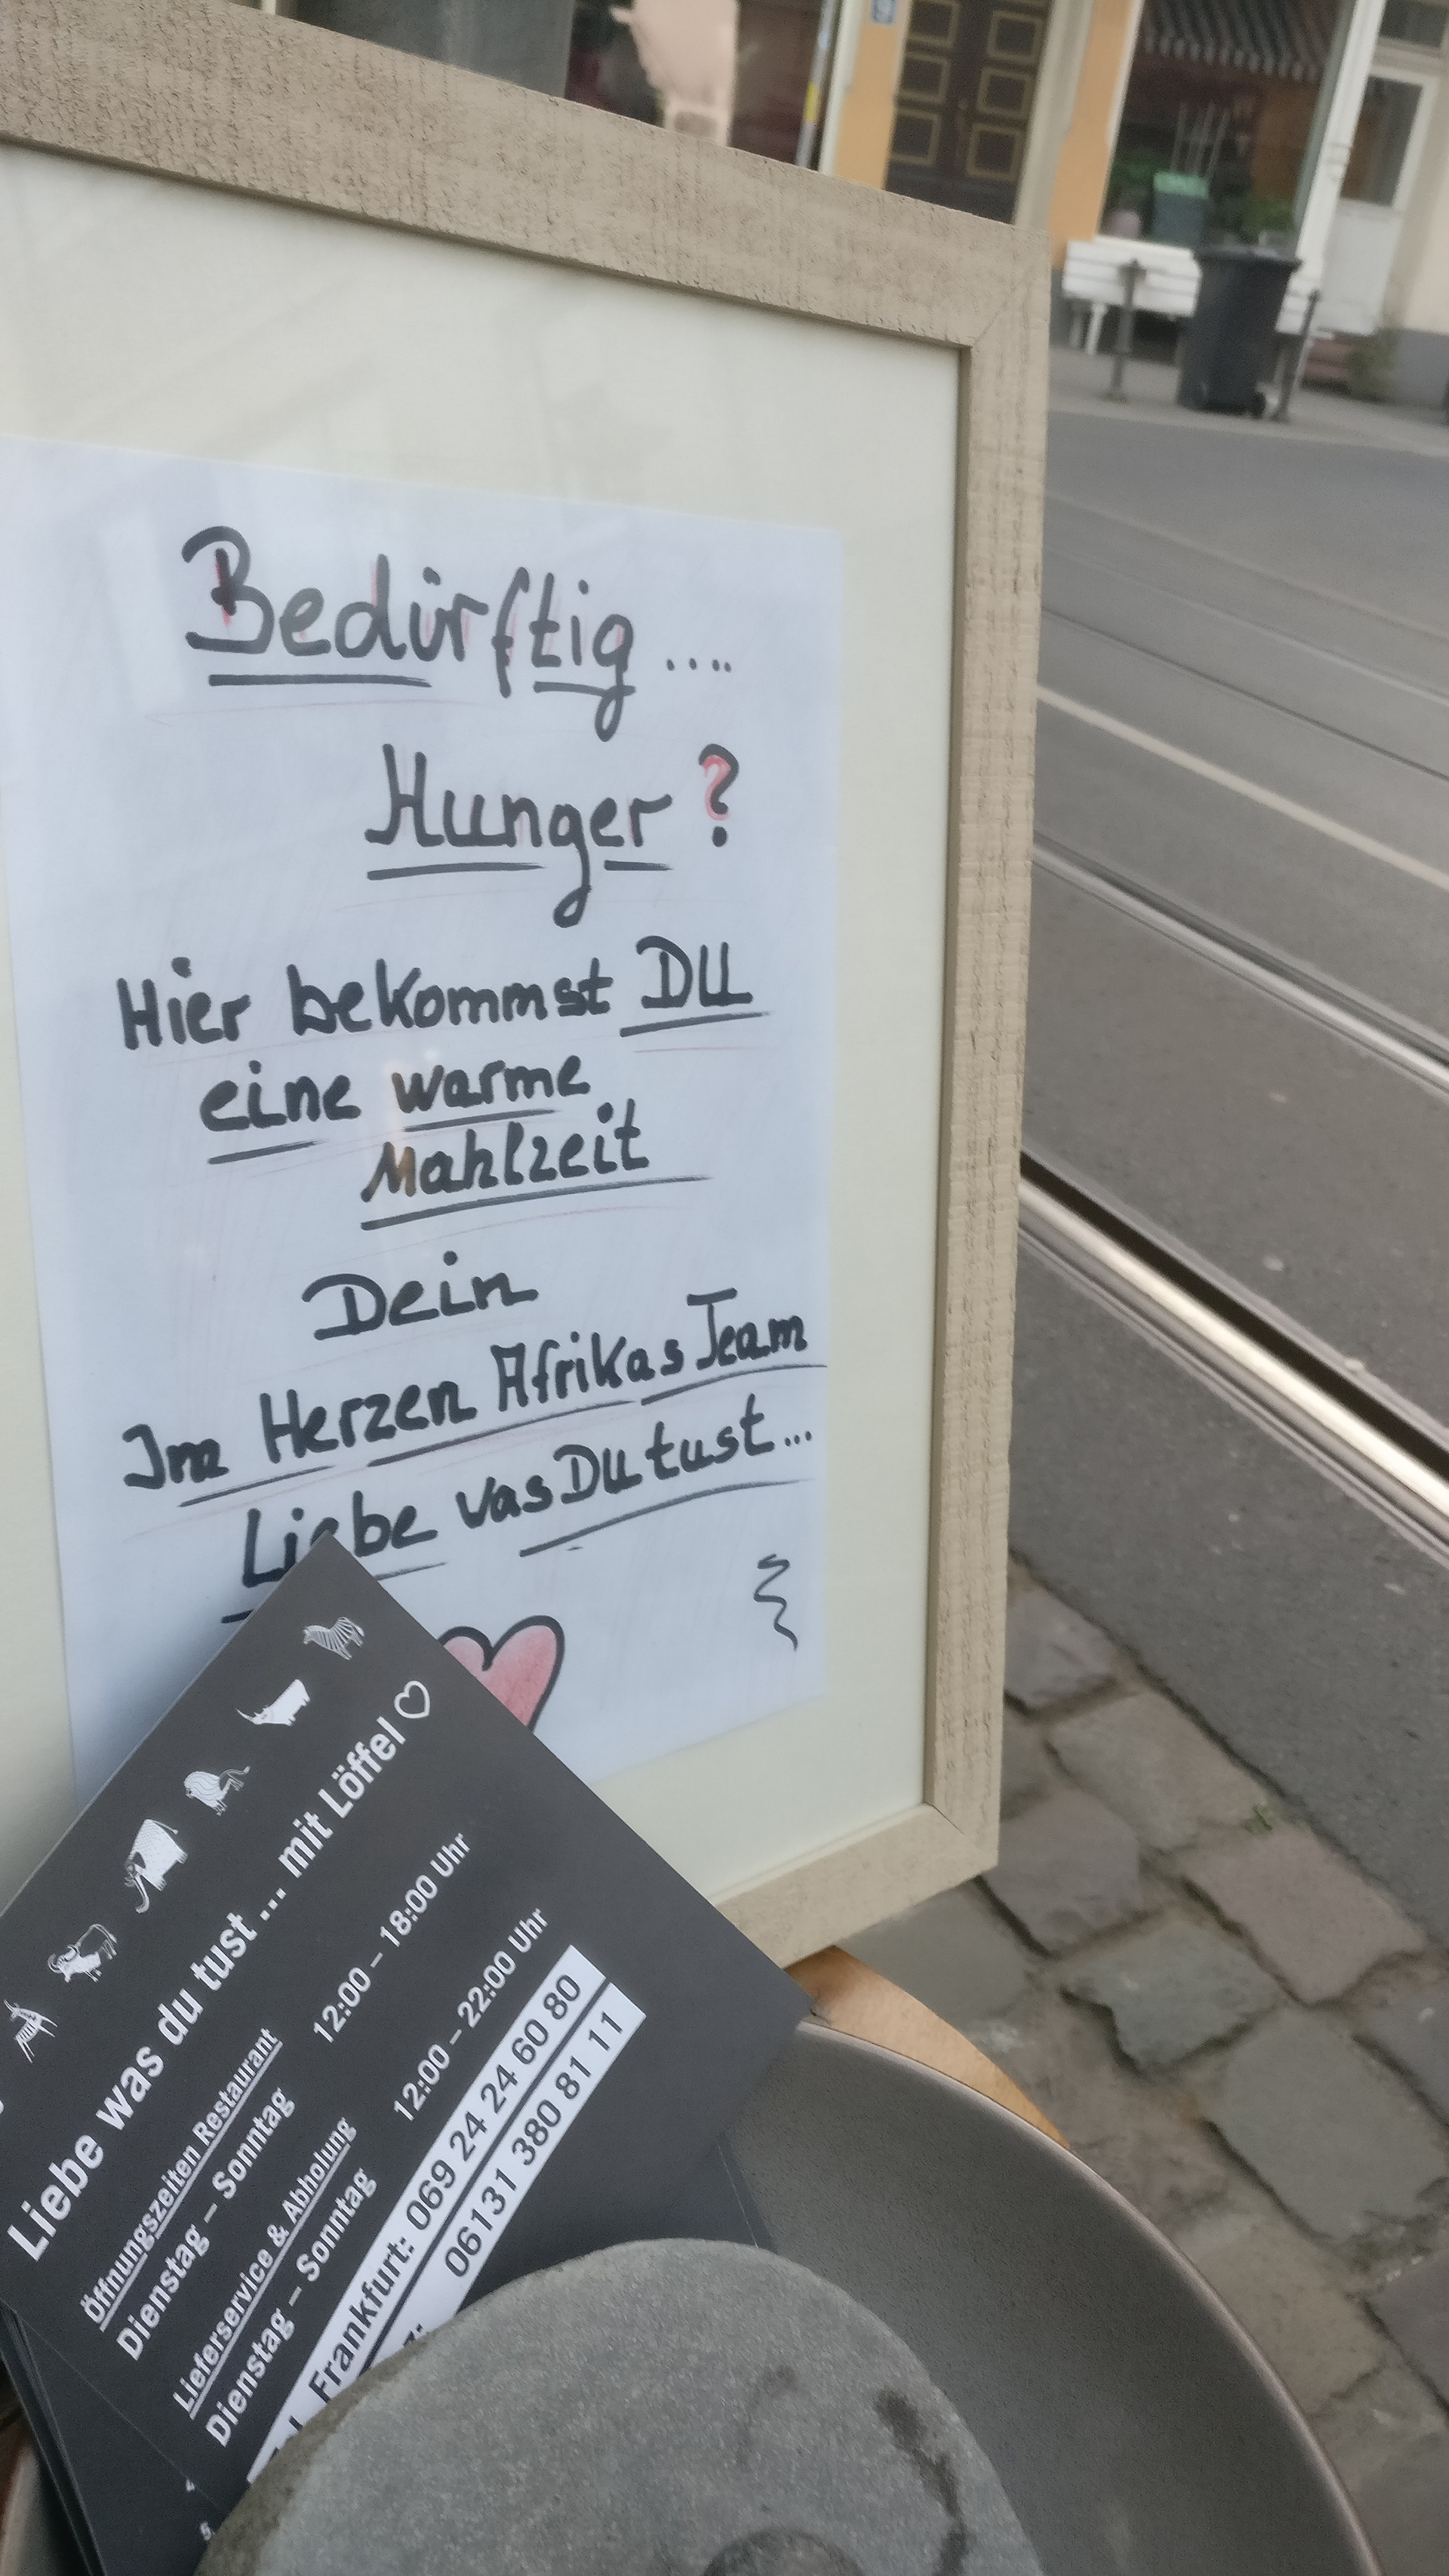 9
Bedürftig ....
Hunger ?
Hier bekommst DU
eine warme
Mahlzeit
Dein
Im Herzen Afrikas Team
Liebe was Du tust...
Liebe was du tust ... mit Löffel
Öffnungszeiten Restaurant
Dienstag – Sonntag 12:00 – 18:00 Uhr
Lieferservice & Abholung
Dienstag – Sonntag 12:00 – 22:00 Uhr
Frankfurt: 069 24 24 60 80
06131 380 81 11